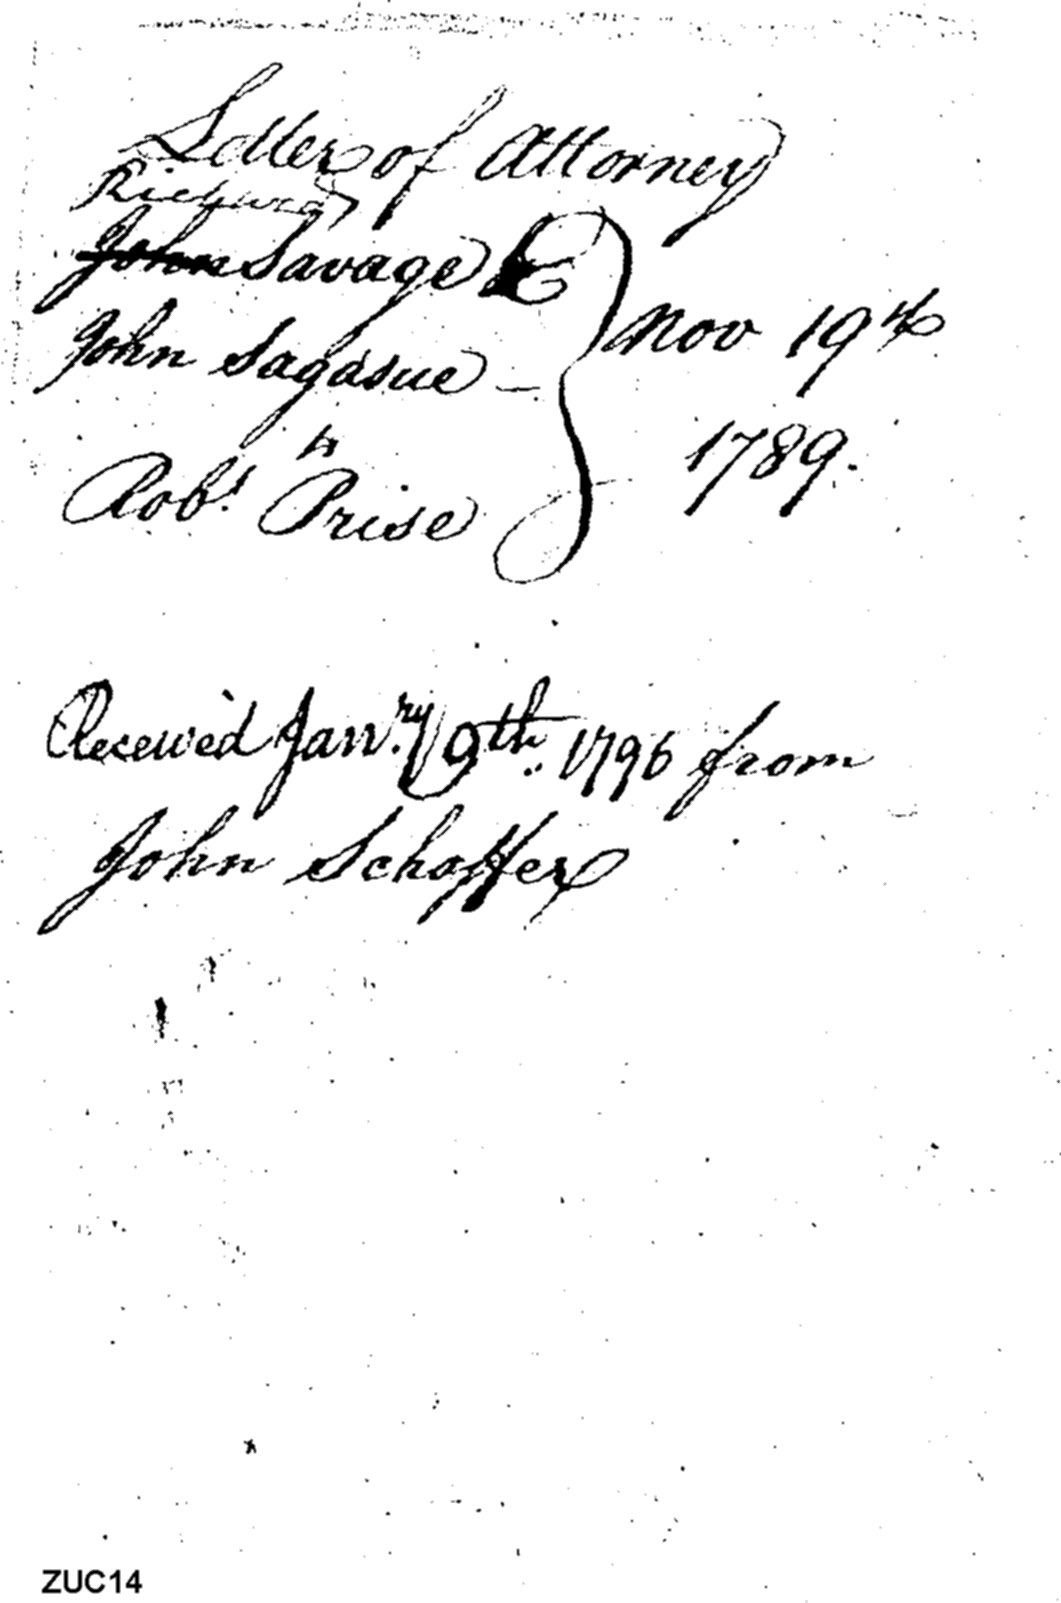 Letter of Attorney
Richard
John Savage &
John Sagasue —
to
Robt. Prise
Nov 19th
1789.
Received Janry. 9th.. 1796 from
John Schaffer
ZUC14